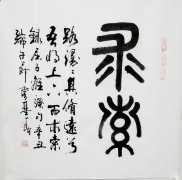 求索
路漫漫其脩遠兮
吾將上下而求索
錄屈子離騷句辛丑
端午節